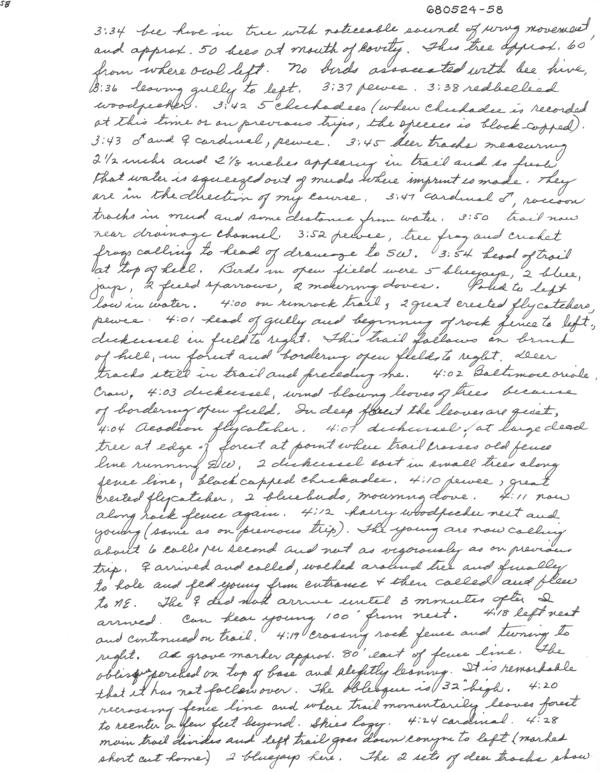 58
680524-58
3:34 bee hive in tree with noticeable sound of wing movement
and approx. 50 bees at mouth of cavity. This tree approx. 60'
from where owl left. No birds associated with bee hive.
3:36 leaving gully to left. 3:37 pewee. 3:38 redbellied
woodpecker. 3:42 5 chickadees (when chickadee is recorded
at this time or on previous trips, the species is black-capped).
3:43 ♂ and ♀ cardinal, pewee. 3:45 deer tracks measuring
2 1/2 inches and 2 1/8 inches appearing in trail and so fresh
that water is squeezed out of muds where imprint is made. They
are in the direction of my course. 3:47 cardinal ♂, raccoon
tracks in mud and some distance from water. 3:50 trail now
near drainage channel 3:52 pewee, tree frog and cricket
frogs calling to head of drainage to SW. 3:54 head of trail
at top of hill. Birds in open field were 5 bluejays, 2 blue,
jays, 2 field sparrows, 2 mourning doves. Pond to left
low in water. 4:00 on rimrock trail, 2 great crested flycatchers,
pewee. 4:01 head of gully and beginning of rock fence to left,
dickcissel in field to right. This trail follows on brink
of hill, in forest and bordering open fields to right. Deer
tracks still in trail and preceding me. 4:02 Baltimore oriole,
Crow, 4:03 dickcissel, wind blowing leaves of trees because
of bordering open field. In deep forest the leaves are quiet,
4:04 Acadian flycatcher. 4:07 dickcissel, at large dead
tree at edge of forest at point where trail crosses old fence
line running EW, 2 dickcissel east in small trees along
fence line, black capped chickadee. 4:10 pewee, great
crested flycatcher, 2 bluebirds, mourning dove. 4:11 now
along rock fence again. 4:12 hairy woodpecker nest and
young (same as on previous trip). The young are now calling
about 6 calls per second and not as vigorously as on previous
trip. ♀ arrived and called, walked around tree and finally
to hole and fed young from entrance & then called and flew
to NE. The ♀ did not arrive until 3 minutes after I
arrived. Can hear young 100' from nest. 4:18 left nest
and continued on trail. 4:19 crossing rock fence and turning to
right. At grave marker approx. 80' east of fence line. The
oblisque perched on top of base and slightly leaning. It is remarkable
that it has not fallen over. The obleague is 32" high. 4:20
recrossing fence line and where trail momentarily leaves forest
to reenter a few feet beyond. Skies hazy. 4:24 cardinal. 4:28
main trail divides and left trail goes down canyon to left (marked
short cut home) 2 bluejays here. The 2 sets of deer tracks show